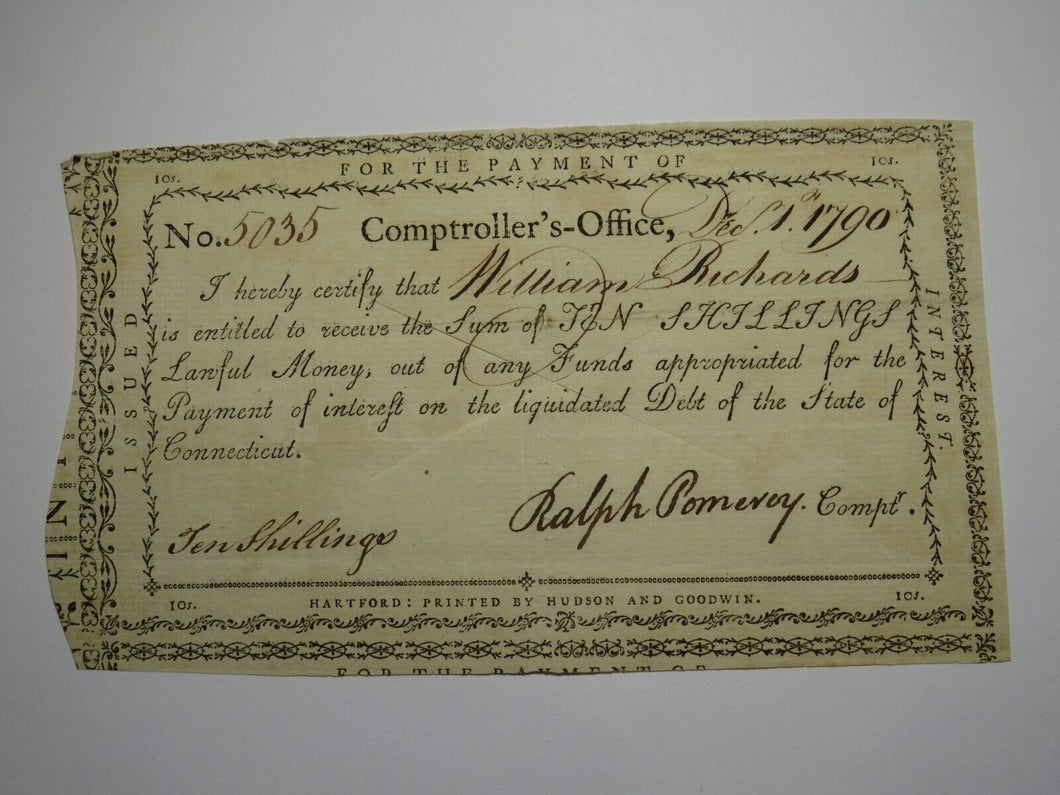 FOR THE PAYMENT OF
10s. 10s.
No. 5035 Comptroller's-Office, Dec. 1st 1790
I hereby certify that William Richards
is entitled to receive the Sum of TEN SHILLINGS
Lawful Money, out of any Funds appropriated for the
Payment of intereſt on the liquidated Debt of the State of
Connecticut.
Ralph Pomeroy. Comptr.
Ten Shillings
ISSUED
INTEREST.
10s. 10s.
HARTFORD: PRINTED BY HUDSON AND GOODWIN.
FOR THE PAYMENT OF